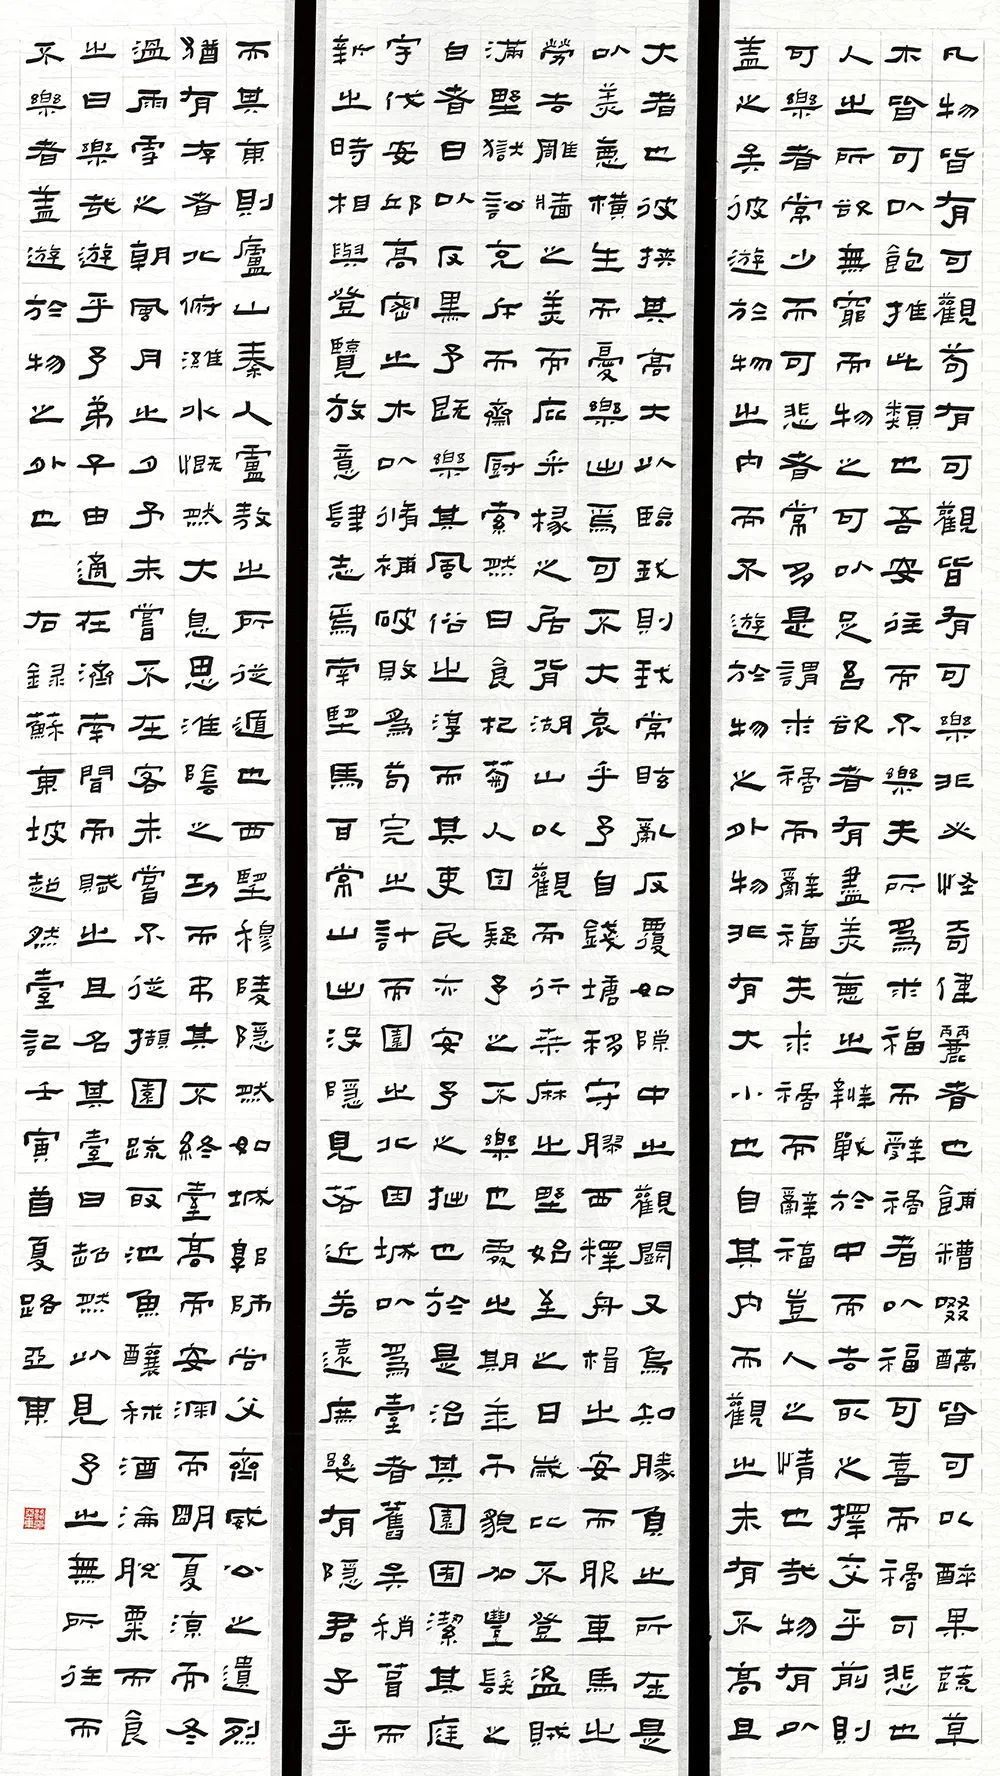 凡物皆有可觀苟有可觀皆有可樂非必怪奇偉麗者也餔糟啜醨皆可以醉果蔬草
木皆可以飽推此類也吾安往而不樂夫所為求福而辭禍者以福可喜而禍可悲也
人之所欲無窮而物之可以足吾欲者有盡美惡之辨戰於中而去取之擇交乎前則
可樂者常少而可悲者常多是謂求禍而辭福夫求禍而辭福豈人之情也哉物有以
蓋之矣彼遊於物之內而不遊於物之外物非有大小也自其內而觀之未有不高且
大者也彼挾其高大以臨我則我常眩亂反覆如隙中之觀鬭又烏知勝負之所在是
以美惡橫生而憂樂出焉可不大哀乎予自錢塘移守膠西釋舟楫之安而服車馬之
勞去雕牆之美而庇采椽之居背湖山以觀而行桑麻之野始至之日歲比不登盜賊
滿野獄訟充斥而齋廚索然日食杞菊人固疑予之不樂也處之期年而貌加豐髮之
白者日以反黑予既樂其風俗之淳而其吏民亦安予之拙也於是治其園囿潔其庭
宇伐安邱高密之木以脩補破敗為苟完之計而園之北因城以為臺者舊矣稍葺而
新之時相與登覽放意肆志焉南望馬耳常山出沒隱見若近若遠庶幾有隱君子乎
而其東則廬山秦人盧敖之所從遁也西望穆陵隱然如城郭師尚父齊威公之遺烈
猶有存者北俯濰水慨然大息思淮陰之功而弔其不終臺高而安深而明夏涼而冬
溫雨雪之朝風月之夕予未嘗不在客未嘗不從擷園蔬取池魚釀秫酒瀹脫粟而食
之曰樂哉遊乎予弟子由適在濟南聞而賦之且名其臺曰超然以見予之無所往而
不樂者蓋遊於物之外也 右錄蘇東坡超然臺記壬寅首夏路亞東